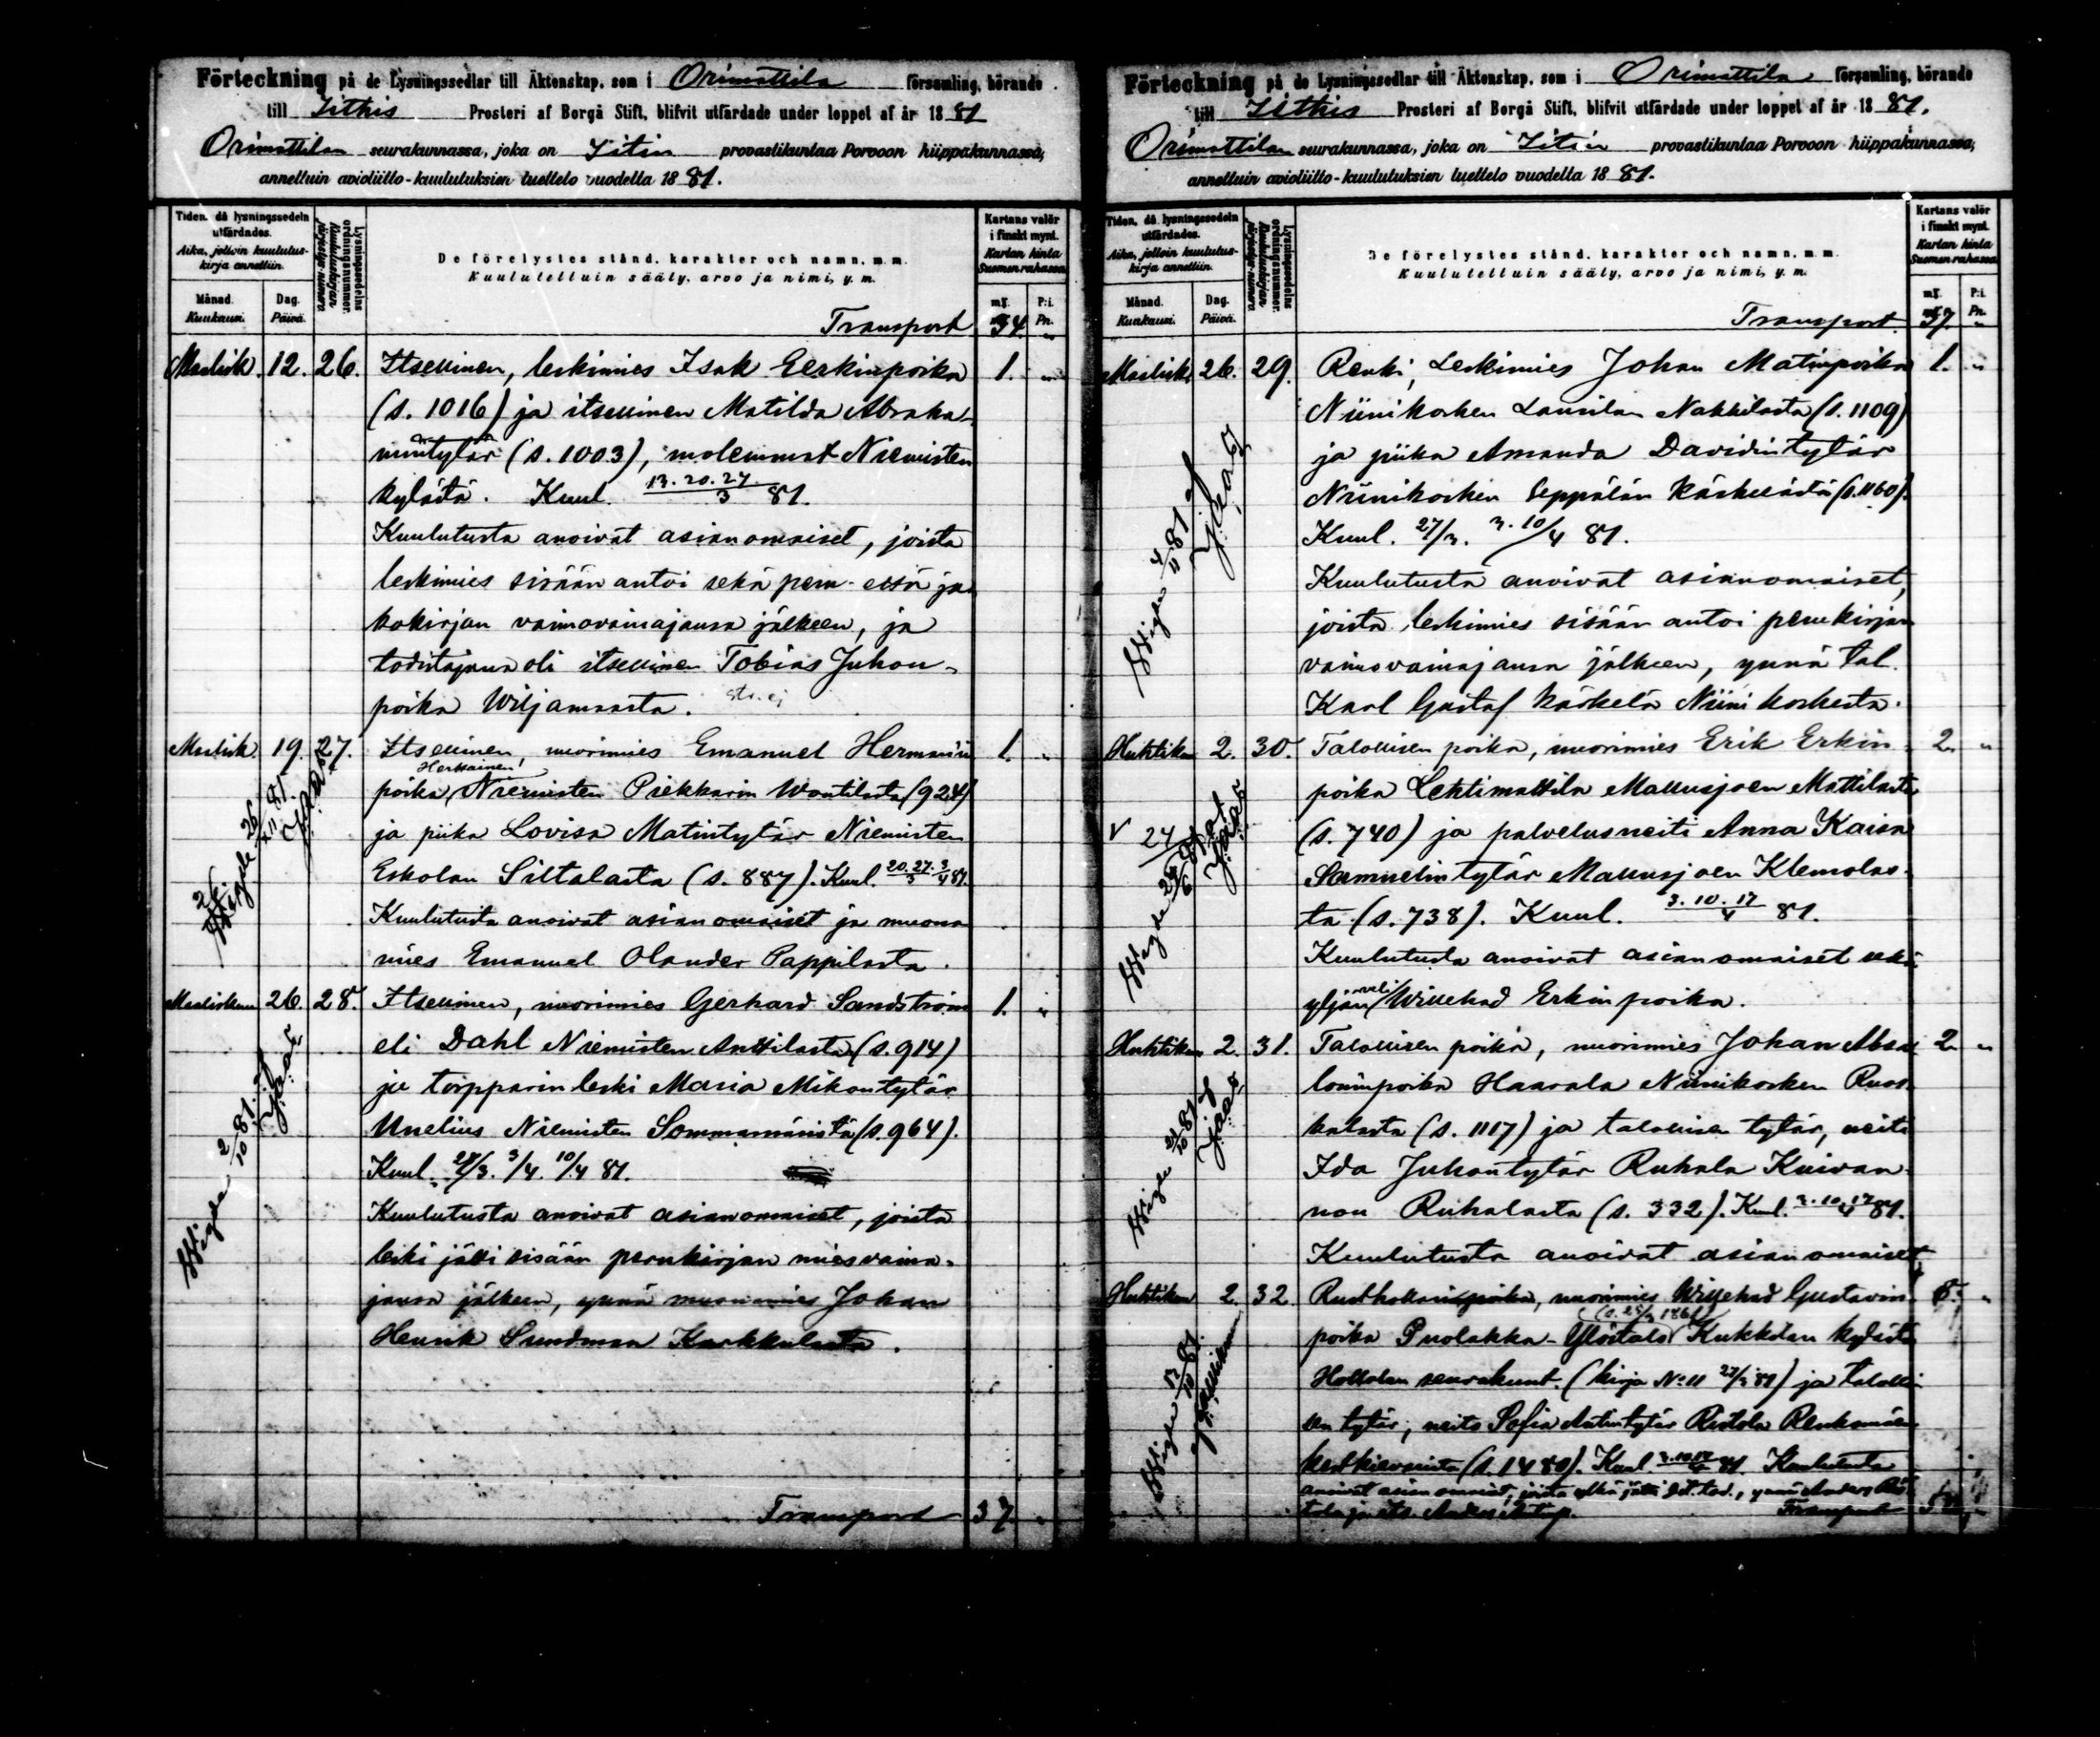 Förteckning på de Lysningssedlar till Äktenskap, som i Orimattila församling, hörande
till Iithis Prosteri af Borgå Stift, blifvit utfärdade under loppet af år 1881
Orimattilan seurakunnassa, joka on Iitin provastikuntaa Porvoon hiippakunnassa,
annettuin avioliitto-kuulutuksien luettelo vuodella 1881.
Tiden, då lysningssedeln utfärdades.
Aika, jolloin kuulutuskirja annettiin.
Månad. Kuukausi.
Dag. Päivä.
Lysningssedelns ordningsnummer.
Kuulutuskirjan järjestys-numero
De förelystes stånd, karakter och namn, m. m.
Kuulutelluin sääty, arvo ja nimi, y. m.
Kartans valör i finskt mynt.
Kartan hinta Suomen rahassa
mf. P:i.
Pn.
Transport 34. "
Maalisk. 12. 26. Itsellinen, leskimies Isak Eerkinpoika 1. "
(s. 1016) ja itsellinen Matilda Abraha-
mintytär (s. 1003), molemmat Niemisten
kylästä. Kuul. 13. 20. 27/3 81.
Kuulutusta anoivat asianomaiset, joista
leskimies sisään antoi sekä peru- että ja-
kokirjan vaimovainajansa jälkeen, ja
todistajana oli itsellinen Tobias Juhon-
poika Wiljamaasta.
Maalisk. 19. 27. Itsellinen, nuorimies Emanuel Hermanin 1. "
Herkainen!
poika, Niemisten Piekkarin Woutilasta (924)
ja piika Lovisa Matintytär Niemisten
Eskolan Siltalasta (s. 887). Kuul. 20. 27/3. 3/4 81.
Kuulutusta anoivat asianomaiset ja muona
mies Emanuel Olander Pappilasta.
Wigde 26/11 81.
Maaliskuu 26. 28. Itsellinen, nuorimies Gerhard Sandström 1. "
eli Dahl Niemisten Anttilasta (s. 914)
ja torpparin leski Maria Mikontytär
Unelius Niemisten Sommarnäistä (s. 964).
Kuul. 27/3. 3/4. 10/4 81.
Kuulutusta anoivat asianomaiset, joista
leski jätti sisään perukirjan miesvaina-
jansa jälkeen, ynnä muonamies Johan
Henrik Sundman Karkkulasta.
Wigde 2/10 81. af
Transport 37 "
Förteckning på de Lysningssedlar till Äktenskap, som i Orimattila församling, hörande
till Iithis Prosteri af Borgå Stift, blifvit utfärdade under loppet af år 1881.
Orimattilan seurakunnassa, joka on Iitin provastikuntaa Porvoon hiippakunnassa,
annettuin avioliitto-kuulutuksien luettelo vuodella 1881.
Tiden, då lysningssedeln utfärdades.
Aika, jolloin kuulutuskirja annettiin.
Månad. Kuukausi.
Dag. Päivä.
Lysningssedelns ordningsnummer.
Kuulutuskirjan järjestys-numero
De förelystes stånd, karakter och namn, m. m.
Kuulutelluin sääty, arvo ja nimi, y. m.
Kartans valör i finskt mynt.
Kartan hinta Suomen rahassa
mf. P:i.
Pn.
Transport. 37. "
Maalisk. 26. 29. Renki, Leskimies Johan Matinpoika 1. "
Niinikosken Lausilan Nakkilasta (s. 1109)
ja piika Amanda Davidintytär
Niinikosken Seppälän Käskelästä (s. 1160).
Kuul. 27/3. 3. 10/4 81.
Kuulutusta anoivat asianomaiset,
joista leskimies sisään antoi perukirjan
vaimovainajansa jälkeen, ynnä tal.
Karl Gustaf Käskelä Niinikoskesta.
Wigde 4/11 81 af
Huhtikuu 2. 30. Talollisen poika, nuorimies Erik Erkin- 2. "
poika Lehtimattila Mallusjoen Mattilasta
(s. 740) ja palvelusneiti Anna Kaisa
Samuelintytär Mallusjoen Klemolas-
ta (s. 738). Kuul. 3. 10. 17/4 81.
Kuulutusta anoivat asianomaiset sekä
yljän veli Willehad Erkinpoika.
Wigde 24/6 81 af
Huhtikuu 2. 31. Talollisen poika, nuorimies Johan Absa- 2. "
lominpoika Haarala Niinikosken Ruos-
kalasta (s. 1117) ja talollisen tytär, neiti
Ida Juhontytär Ruhala Kuivan-
non Ruhalasta (s. 332). Kuul. 3. 10. 17/4 81.
Kuulutusta anoivat asianomaiset
Huhtikuu 2. 32. Rusthollarinpoika, nuorimies Willehad Gustavin 8. "
poika Puolakka-Ylöstalo Kukkilan kylästä
Hollolan seurakunt. (kirja No 11 27/3 81) ja talolli-
sen tytär, neito Sofia Antintytär Ristola Renkomäen
keskievarista (s. 1480). Kuul. 3. 10. 17/4 81. Kuulutusta
anoivat asianomaiset, joista
Wigde 17/10 81.
Transport